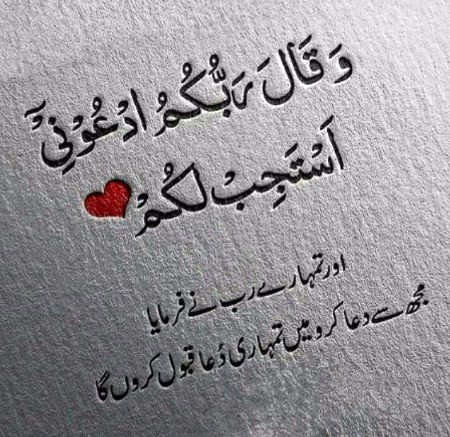 وَ قَالَ رَبُّكُمُ ادْعُوْنِيْۤ
اَسْتَجِبْ لَكُمْ
اور تمہارے رب نے فرمایا
مجھ سے دعا کرو میں تمہاری دُعا قبول کروں گا